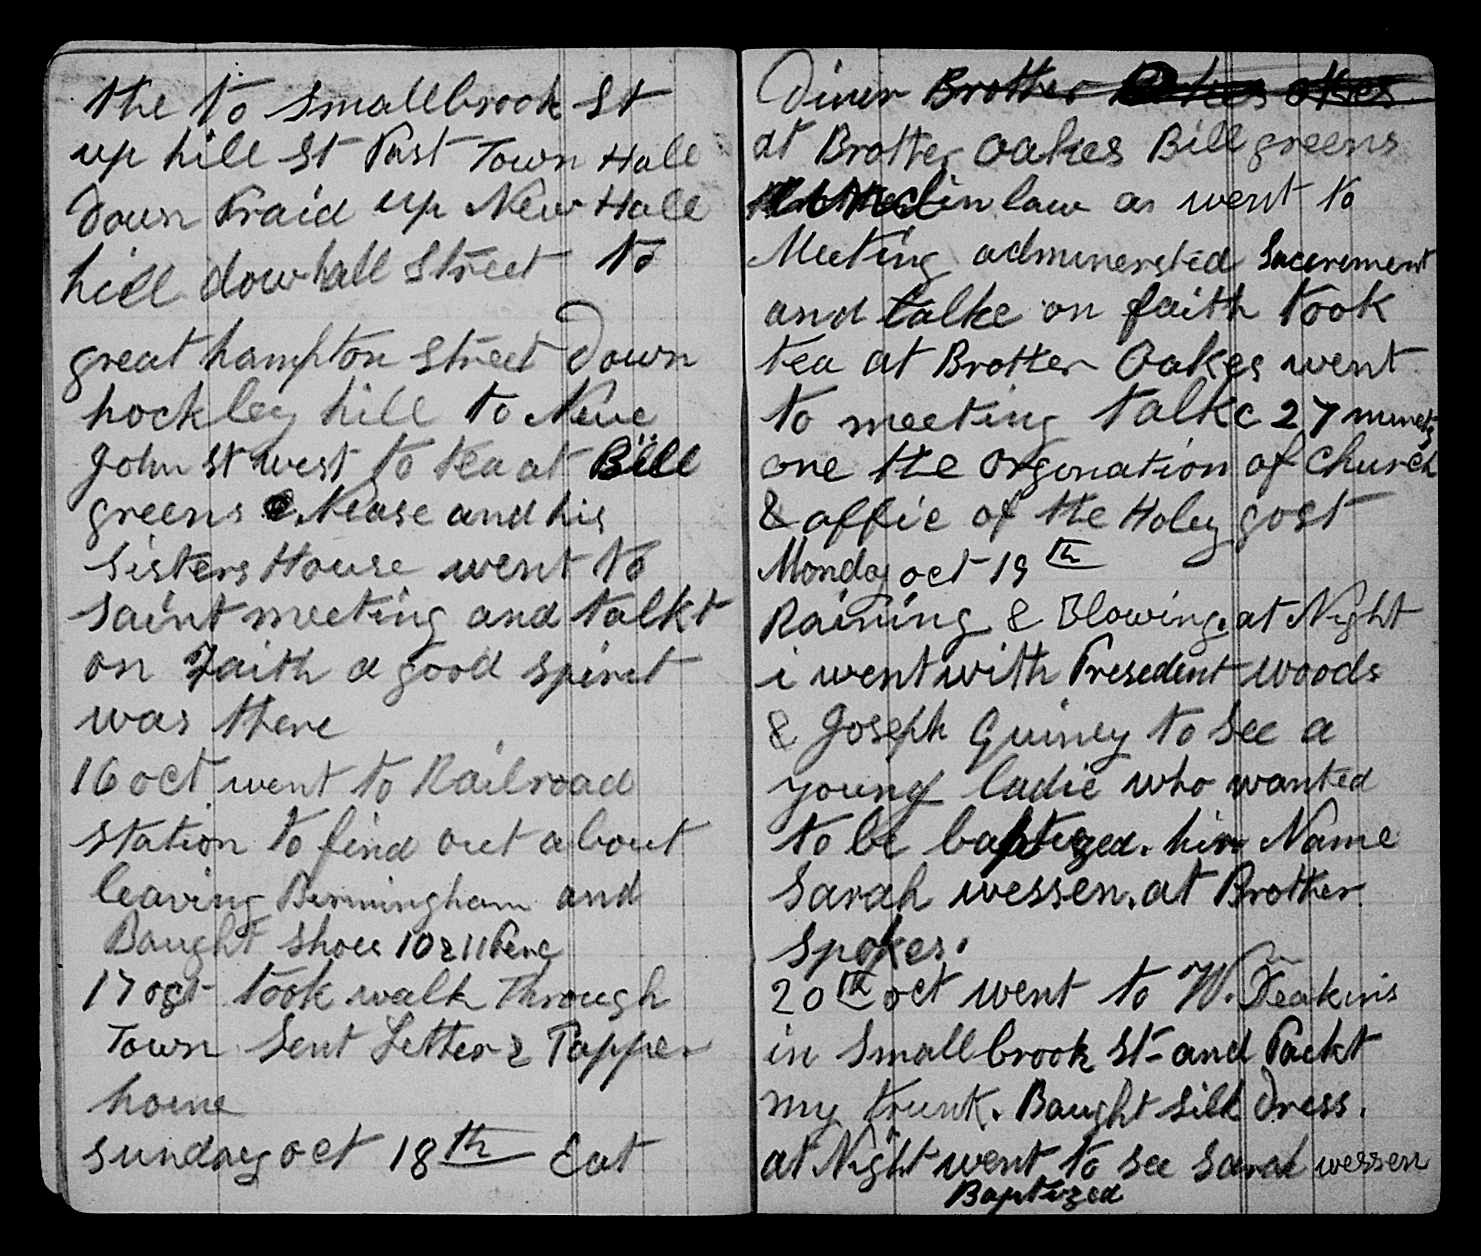 the to smallbrook St
up hill St Past Town Hall
Down Praid up New Hall
hill dow hall Street to
great hampton Street Down
hockley hill to New
John St west to tea at Bill
greens Nease and his
Sisters House went to
Saint meeting and talkt
on Faith a good spiret
was there
16 oct went to Railroad
station to find out about
leaving Birmingham and
Baught shoes 10 & 11 Penc
17 oct took walk Through
Town Sent Letter & Papper
home
Sunday oct 18th Eat
Diner Brother
at Brother Oakes Bill greens
in law as went to
Meeting adminersted Sacerement
and talke on faith took
tea at Brother Oakes went
to meeting talke 27 munets
one the orgination of Church
& offic of the Holey gost
Monday oct 19th
Raining & Blowing. at Night
i went with Presedent woods
& Joseph Quiney to see a
young ladie who wanted
to be baptized. hir Name
Sarah wessen. at Brother
spokes.
20th oct went to W. Deakins
in Smallbrook St- and Packt
my trunk. Baught Silk Dress.
at Night went to see Sarah wessen
Baptized